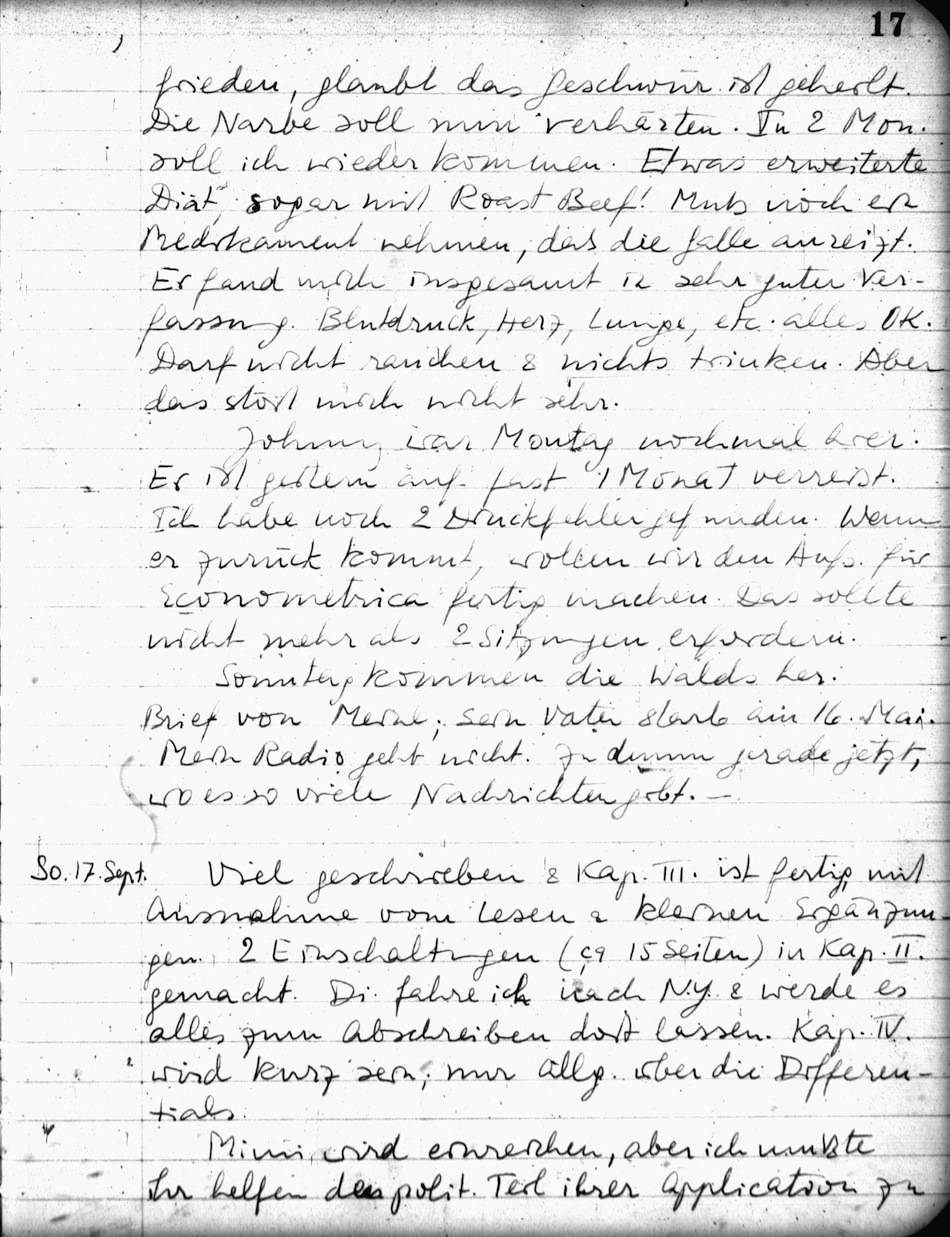 17
frieden, glaubt das Geschwür ist geheilt.
Die Narbe soll nun verhärten. In 2 Mon.
soll ich wieder kommen. Etwas erweiterte
Diät, sogar mit Roast Beef! Muss noch ein
Medikament nehmen, das die Galle anreizt.
Er fand mich insgesamt in sehr guter Ver-
fassung. Blutdruck, Herz, Lunge, etc. alles OK.
Darf nicht rauchen & nichts trinken. Aber
das stört mich nicht sehr.
Johnny war Montag nochmal hier.
Er ist gestern auf fast 1 Monat verreist.
Ich habe noch 2 Druckfehler gefunden. Wenn
er zurück kommt, wollen wir den Aufs. für
Econometrica fertig machen. Das sollte
nicht mehr als 2 Sitzungen erfordern.
Sonntag kommen die Walds her.
Brief von ; sein Vater starb am 16. Mai.
Mein Radio geht nicht. Zu dumm gerade jetzt,
wo es so viele Nachrichten gibt. —
So. 17. Sept. Viel geschrieben & Kap. III. ist fertig, mit
Ausnahme vom Lesen & kleinen Ergänzun-
gen. 2 Einschaltungen (ca 15 Seiten) in Kap. II.
gemacht. Di. fahre ich nach N.Y. & werde es
alles zum Abschreiben dort lassen. Kap. IV.
wird kurz sein, nur allg. über die Differen-
tials.
Mimi wird einreichen, aber ich musste
Ihr helfen den polit. Teil ihrer Application zu